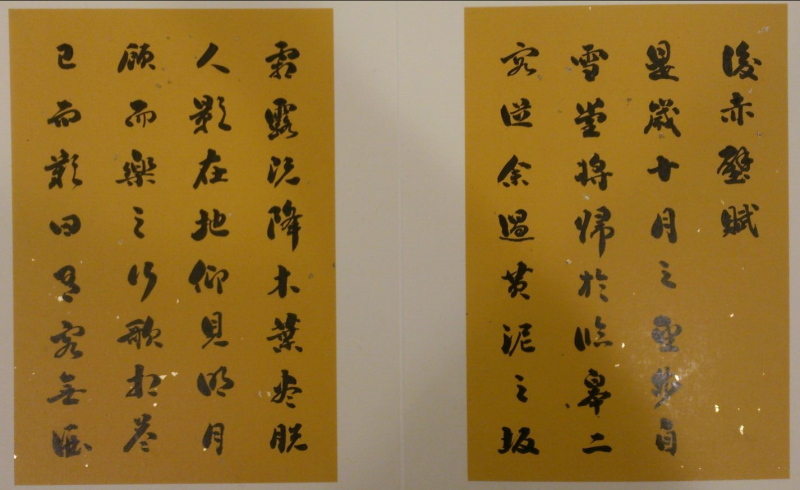 後赤壁賦
是歲十月之望步自
雪堂將歸於臨皋二
客從余過黃泥之坂
霜露既降木葉盡脫
人影在地仰見明月
顧而樂之行歌相答
已而歎曰有客無酒